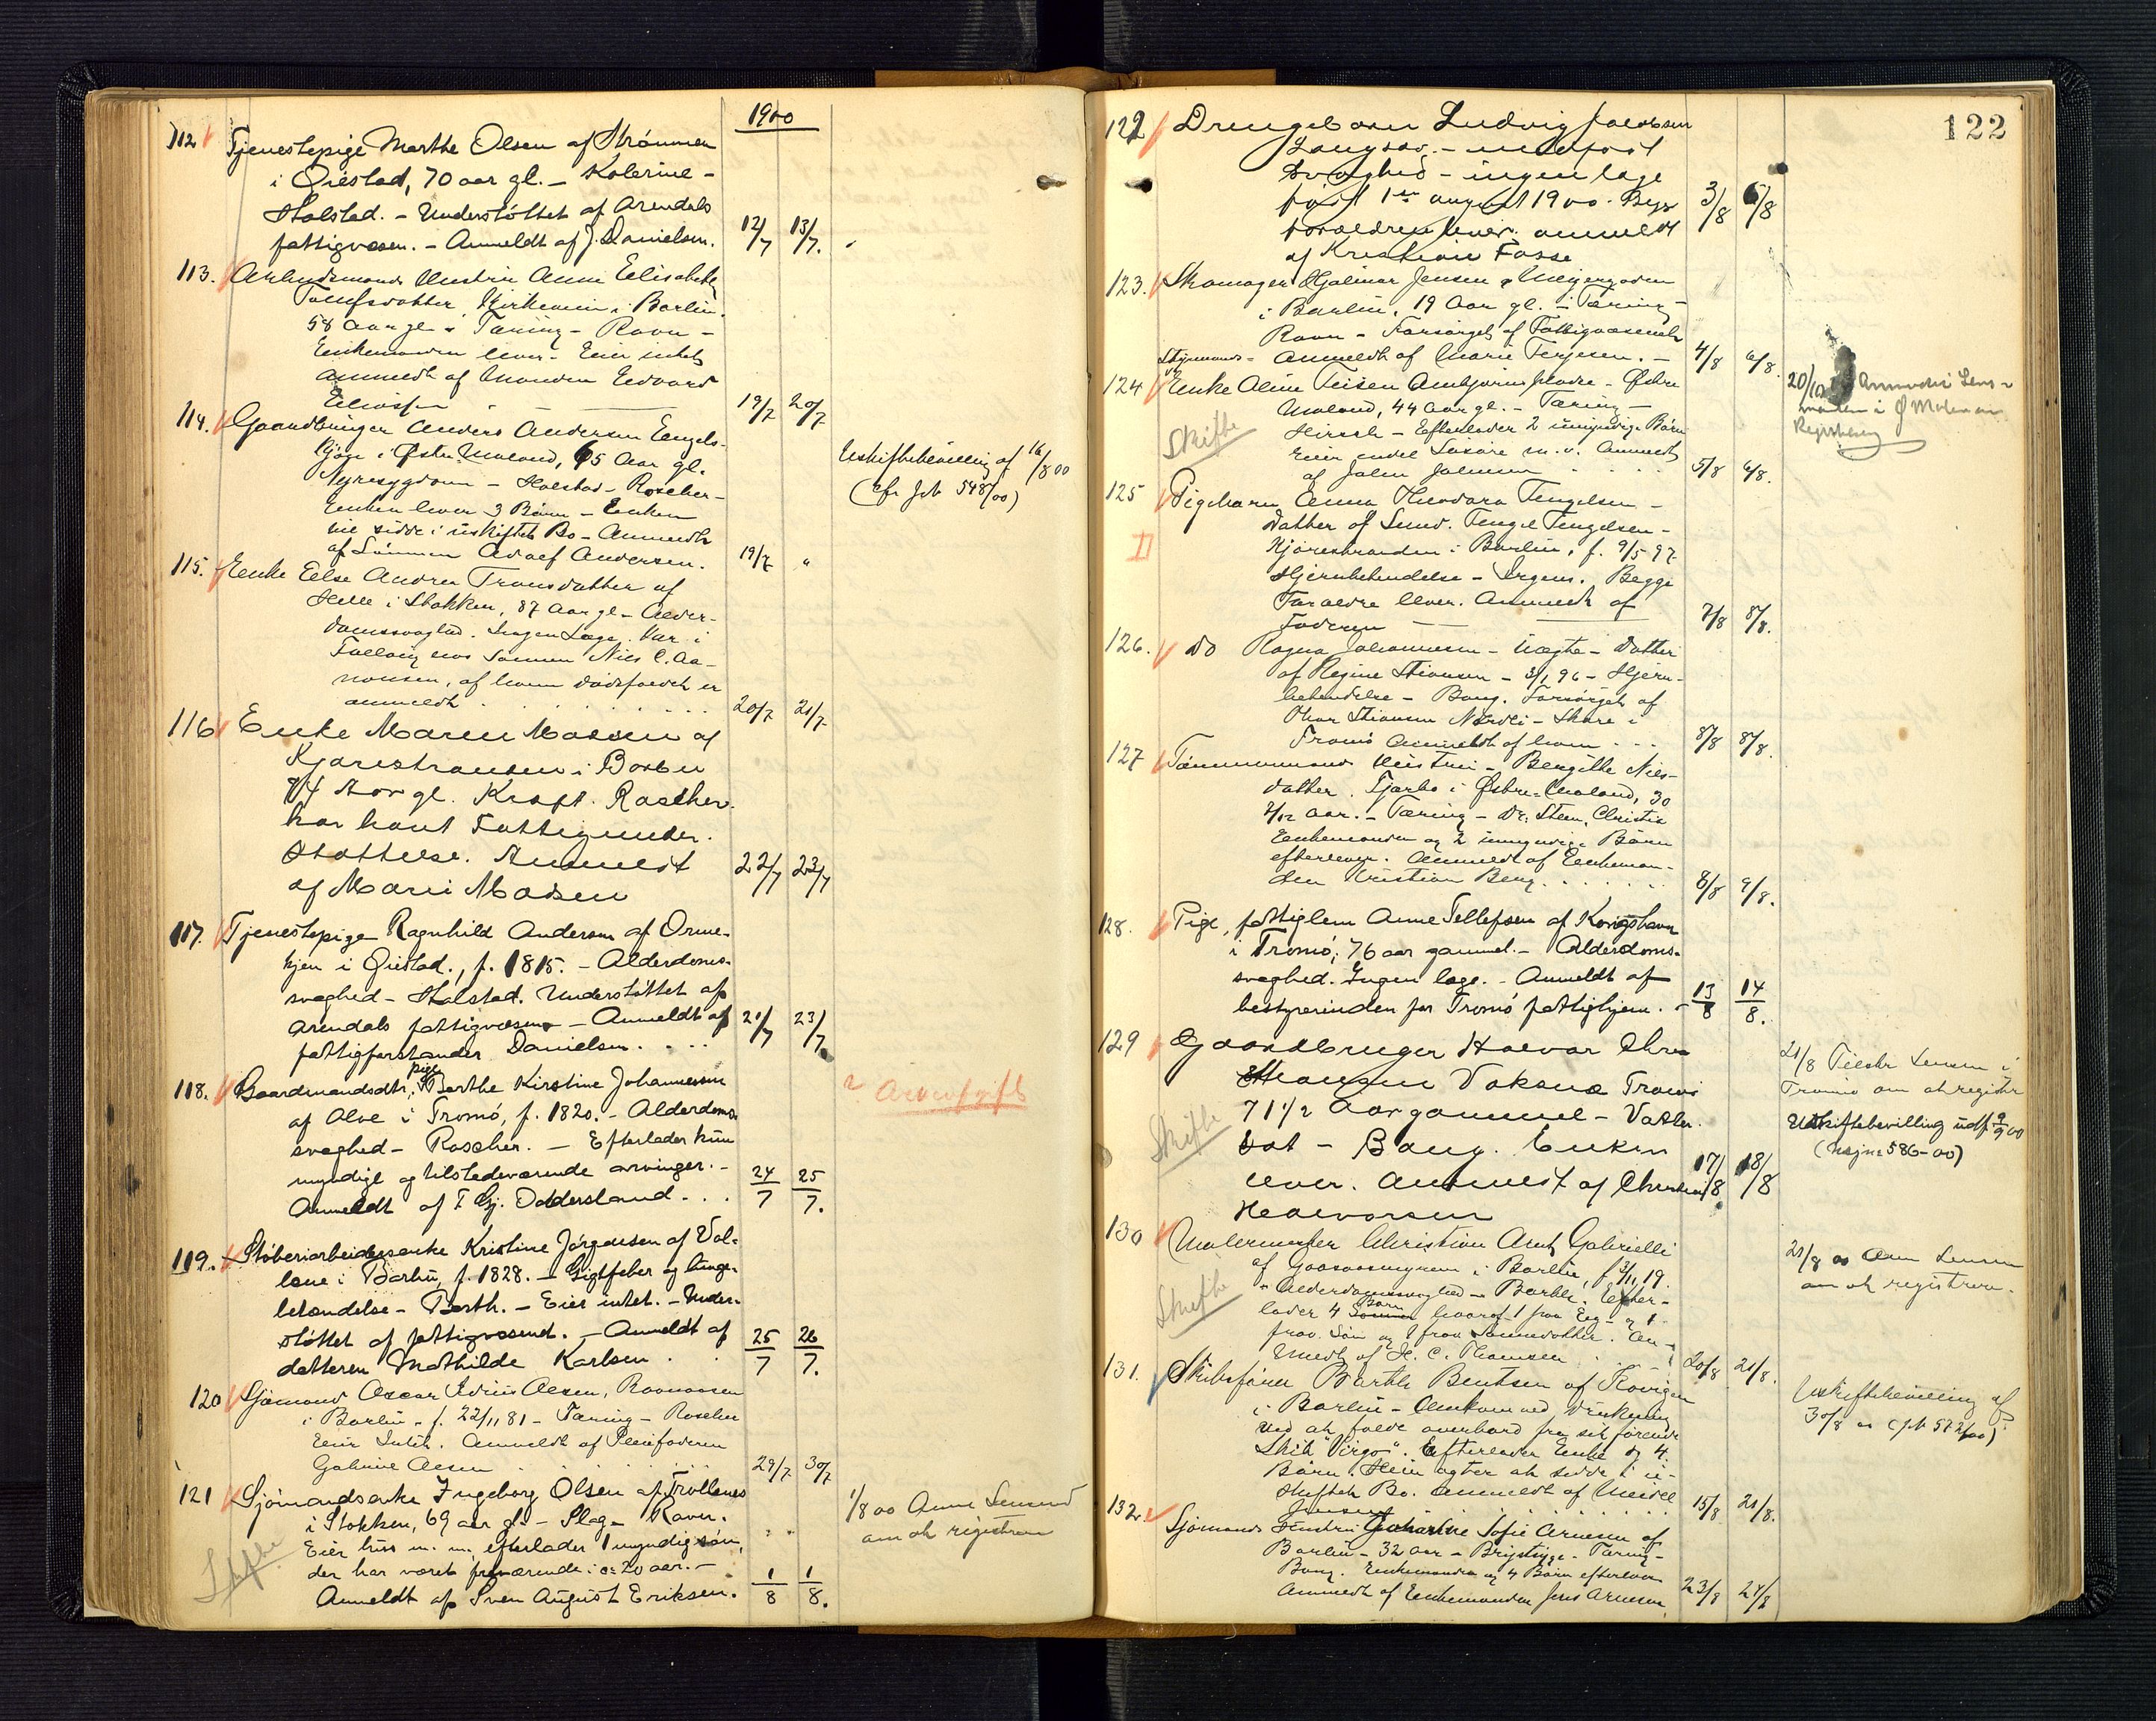 1900
112 Tjenestepige Marthe Olsen af Strømmen
i Øiestad, 70 aar gl. – Kolerine –
Stalstad. – Understøttet af Arendals
fattigvæsen. – Anmeldt af J. Danielsen. 12/7 13/7.
113. Arbeidsmands Hustru Anne Elisabeth
Barbu.
58 Aar gl. – Tæring – Ravn –
Enkemanden lever. Eier intet
anmeldt af Manden Edvard
19/7 20/7
114. Gaardbruger Anders Andersen Engels-
i Østre Moland, 65 Aar gl.
Nyresygdom – Stalstad – Roscher –
Enken lever 3 Børn – Enken
vil sidde i uskiftet Bo – Anmeldt
af Sønnen Adolf Andersen. 19/7 "
Uskiftebevilling af 16/8 00
(cfr Jb 548/00)
115. Enke Else Andrea Tronsdatter af
Helle i Stokken, 87 Aar gl – Alder-
domssvaghed. Ingen Læge. Var i
Follaug hos Sønnen Niels C. Aa-
nonsen, af hvem dødsfaldet er
anmeldt . . . 20/7 21/7
116 Enke Maren Madsen af
Kjærestranden i Barbu
74 Aar gl. Kræft. Roscher.
har havt Fattigunder-
støttelse. Anmeldt
af Marie Madsen 22/7 23/7
117. Tjenestepige Ragnhild Andersen af Orme-
kjen i Øiestad., f. 1815. – Alderdoms-
svaghed – Stalstad. Understøttet af
Arendals fattigvæsen – Anmeldt af
fattigforstander Danielsen. . . . 21/7 23/7.
118. Gaardmandsdtr, pige Berthe Kirstine Johannessen
af Alve i Tromø, f. 1820. – Alderdoms-
svaghed – Roscher. – Efterlader kun
myndige og tilstedeværende arvinger. –
Anmeldt af T Gj. Oddersland. . . 24/7 25/7.
? Arveafgift
119. Støberiarbeidersenke Kristine Jørgensen af Vol-
lene i Barbu, f. 1828. – Gigtfeber og lunge-
betændelse – Barth. – Eier intet. – Under-
støttet af fattigvæsenet. – Anmeldt af
datteren Mathilde Karlsen . . 25/7 26/7.
120 Sjømand Oscar Olsen,
i Barbu – f. 22/11 81 – Tæring – Roscher
Eier Intet. Anmeldt af Pleiefaderen
Gabriel Olsen 29/7 30/7
121 Sjømandsenke Ingeborg Olsen af Trollenes
i Stokken, 69 aar gl. – Slag – Raven.
Eier hus m. m., efterlader 1 myndig søn,
der har været fraværende i ca 20 aar. –
Anmeldt af Sven August Eriksen. 1/8 1/8.
Skifte
1/8 00 Anm Lensmd
om at registrere
122
122 Drengebarn Ludvig Jacobsen
Langsæv. – medfødt
svaghed – ingen læge
født 1ste august 1900. Begge
forældre lever. anmeldt
af Kristian Fosse 3/8 6/8
123. Skomager Hjalmar Jensen
i Barbu, 19 Aar gl. – Tæring –
Ravn – Forsørget af Fattigvæsenet
Anmeldt af Marie Terjesen. – 4/8 6/8.
124 Styrmands- Enke Aline – Østre
Moland, 44 Aar gl. – Tæring –
Hirsch – Efterlader 2 umyndige Børn
Eier endel Løsøre m.v. Anmeldt
af 5/8 6/8.
Skifte
20/10 Anmodet Lens-
manden i Ø Moland om
Registrering
125 Pigebarn Anna Theodora Tengelsen –
Datter af Tengel Tengelsen –
Kjærestranden i Barbu, f. 9/5 97
Hjernebetændelse – Begge
Forældre lever. Anmeldt af
Faderen 7/8 8/8.
126. do Ragna Johannessen – Uægte – Datter
af Regine Stiansen – 3/1 96 – Hjerne-
betændelse – Bang. Forsørget af
Othar Stiansen –
Tromø Anmeldt af ham . . . 8/8 8/8.
127 Tømmermands Hustru – Bergitte Niels-
datter. i Østre-Moland, 30
7/12 Aar. – Tæring – Dr. Steen, Christia
Enkemanden og 2 umyndige Børn
efterlever. Anmeldt af Enkeman-
den Kristian Berg. . . . 8/8 9/8.
128. Pige, fattiglem Anne Tellefsen af Kongshavn
i Tromø, 76 aar gammel. – Alderdoms-
svaghed. Ingen læge. – Anmeldt af
bestyrerinden for Tromø fattighjem. – 13/8 14/8.
129 Gaardbruger Halvor Chri-
Voksnæ Tromø
71 1/2 Aar gammel – Vatter-
sot – Bang. Enken
lever. Anmeldt af Christian
Halvorsen 17/8 18/8
Skifte
21/8 Tilskr Lensm i
Tromø om at registr
Uskiftebevilling udf. 9/9 00
(Nsjn: 586-00)
130 Malermester Christian Arnt Gabrielli
af i Barbu, f 3/11 19.
– Alderdomssvaghed – Barth. Efter-
lader 4 Børn hvoraf 1 fra Eg – og 1
frav. Søn og 1 frav. Sønnedatter. An-
meldt af H. C. Thomsen 20/8 21/8.
Skifte
21/8 00 Anm Lensm
om at registrere.
131. Skibsfører Barth Bentsen af
i Barbu – Omkom ved Drukning
ved at falde overbord fra sit førende
Skib "Virgo". Efterlader Enke og 4
Børn. Hun agter at sidde i u-
skiftet Bo. Anmeldt af
Jensen 15/8 21/8.
Uskiftebevilling af
30/8 00 (jb 572/00)
132. Sjømands Hustru Sofie Arnesen af
Barbu – 32 aar – Brystsyge – Tæring –
Bang. Enkemanden og 4 Børn efterlever
Anmeldt af Enkemanden Jens Arnesen. 23/8 24/8